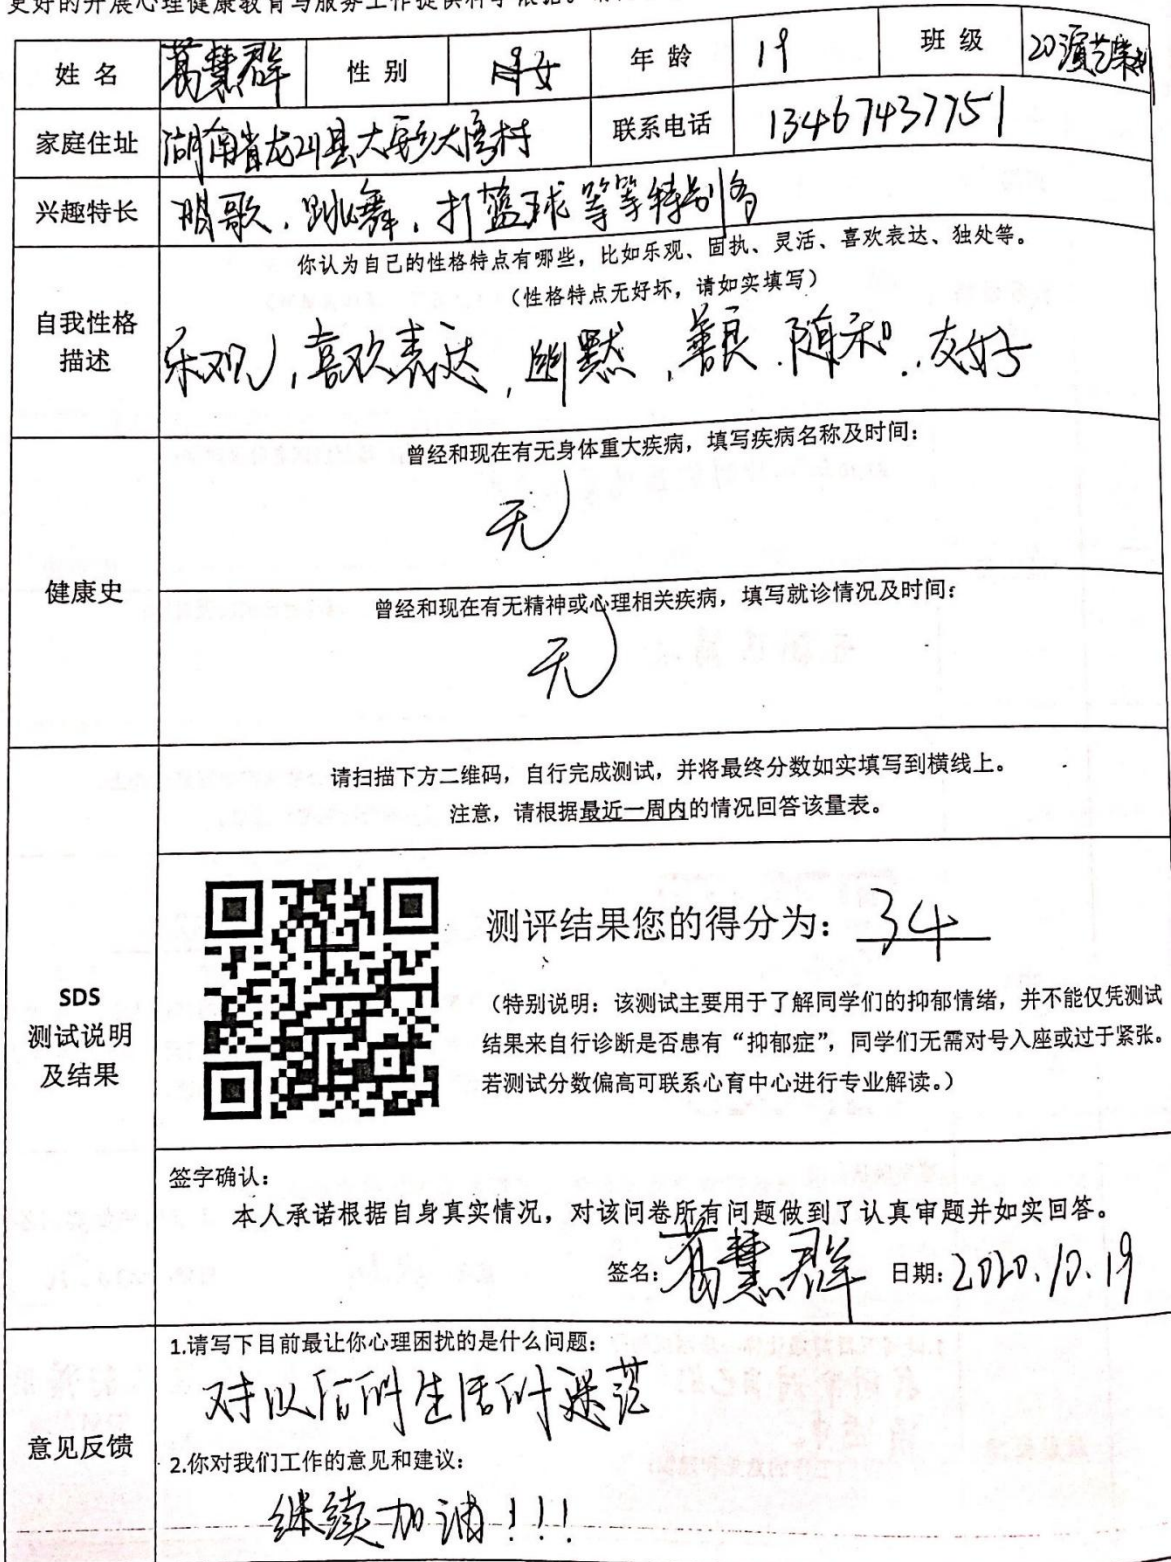 更好的开展心理健康教育与服务工作提供科学依据。
姓 名 葛慧群 性 别 女 年 龄 19 班 级 20演艺
家庭住址 湖南省龙山县大安乡大 村 联系电话 13467437751
兴趣特长 唱歌、跳舞、打蓝球等等特别多
你认为自己的性格特点有哪些，比如乐观、固执、灵活、喜欢表达、独处等。
（性格特点无好坏，请如实填写）
自我性格
描述
乐观，喜欢表达，幽默，善良.随和.友好
曾经和现在有无身体重大疾病，填写疾病名称及时间：
无
健康史
曾经和现在有无精神或心理相关疾病，填写就诊情况及时间：
无
请扫描下方二维码，自行完成测试，并将最终分数如实填写到横线上。
注意，请根据最近一周内的情况回答该量表。
SDS
测试说明
及结果
测评结果您的得分为：34
（特别说明：该测试主要用于了解同学们的抑郁情绪，并不能仅凭测试
结果来自行诊断是否患有“抑郁症”，同学们无需对号入座或过于紧张。
若测试分数偏高可联系心育中心进行专业解读。）
签字确认：
本人承诺根据自身真实情况，对该问卷所有问题做到了认真审题并如实回答。
签名：葛慧群 日期：2020.10.19
意见反馈
1.请写下目前最让你心理困扰的是什么问题：
对以后的生活的迷茫
2.你对我们工作的意见和建议：
继续加油！！！